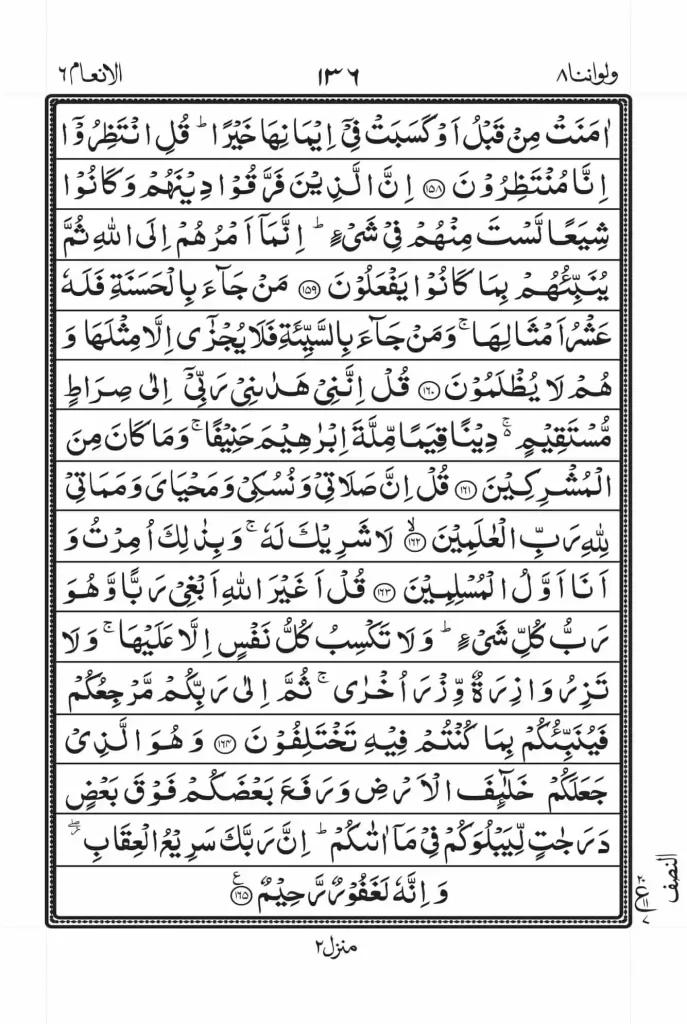 ولواننا ٨ ١٣٦ الانعام ٦
اٰمَنَتْ مِنْ قَبْلُ اَوْ كَسَبَتْ فِیْۤ اِیْمَانِهَا خَیْرًا ؕ قُلِ انْتَظِرُوْۤا
اِنَّا مُنْتَظِرُوْنَ ﴿۱۵۸﴾ اِنَّ الَّذِیْنَ فَرَّقُوْا دِیْنَهُمْ وَ كَانُوْا
شِیَعًا لَّسْتَ مِنْهُمْ فِیْ شَیْءٍ ؕ اِنَّمَاۤ اَمْرُهُمْ اِلَی اللّٰهِ ثُمَّ
یُنَبِّئُهُمْ بِمَا كَانُوْا یَفْعَلُوْنَ ﴿۱۵۹﴾ مَنْ جَآءَ بِالْحَسَنَةِ فَلَهٗ
عَشْرُ اَمْثَالِهَا ۚ وَ مَنْ جَآءَ بِالسَّیِّئَةِ فَلَا یُجْزٰۤی اِلَّا مِثْلَهَا وَ
هُمْ لَا یُظْلَمُوْنَ ﴿۱۶۰﴾ قُلْ اِنَّنِیْ هَدٰىنِیْ رَبِّیْۤ اِلٰی صِرَاطٍ
مُّسْتَقِیْمٍ ۬ۚ دِیْنًا قِیَمًا مِّلَّةَ اِبْرٰهِیْمَ حَنِیْفًا ۚ وَ مَا كَانَ مِنَ
الْمُشْرِكِیْنَ ﴿۱۶۱﴾ قُلْ اِنَّ صَلَاتِیْ وَ نُسُكِیْ وَ مَحْیَایَ وَ مَمَاتِیْ
لِلّٰهِ رَبِّ الْعٰلَمِیْنَ ﴿۱۶۲﴾ۙ لَا شَرِیْكَ لَهٗ ۚ وَ بِذٰلِكَ اُمِرْتُ وَ
اَنَا اَوَّلُ الْمُسْلِمِیْنَ ﴿۱۶۳﴾ قُلْ اَغَیْرَ اللّٰهِ اَبْغِیْ رَبًّا وَّ هُوَ
رَبُّ كُلِّ شَیْءٍ ؕ وَ لَا تَكْسِبُ كُلُّ نَفْسٍ اِلَّا عَلَیْهَا ۚ وَ لَا
تَزِرُ وَازِرَةٌ وِّزْرَ اُخْرٰی ۚ ثُمَّ اِلٰی رَبِّكُمْ مَّرْجِعُكُمْ
فَیُنَبِّئُكُمْ بِمَا كُنْتُمْ فِیْهِ تَخْتَلِفُوْنَ ﴿۱۶۴﴾ وَ هُوَ الَّذِیْ
جَعَلَكُمْ خَلٰٓئِفَ الْاَرْضِ وَ رَفَعَ بَعْضَكُمْ فَوْقَ بَعْضٍ
دَرَجٰتٍ لِّیَبْلُوَكُمْ فِیْ مَاۤ اٰتٰىكُمْ ؕ اِنَّ رَبَّكَ سَرِیْعُ الْعِقَابِ ۖؗ
وَ اِنَّهٗ لَغَفُوْرٌ رَّحِیْمٌ ﴿۱۶۵﴾ۧ
النصف
منزل ۲